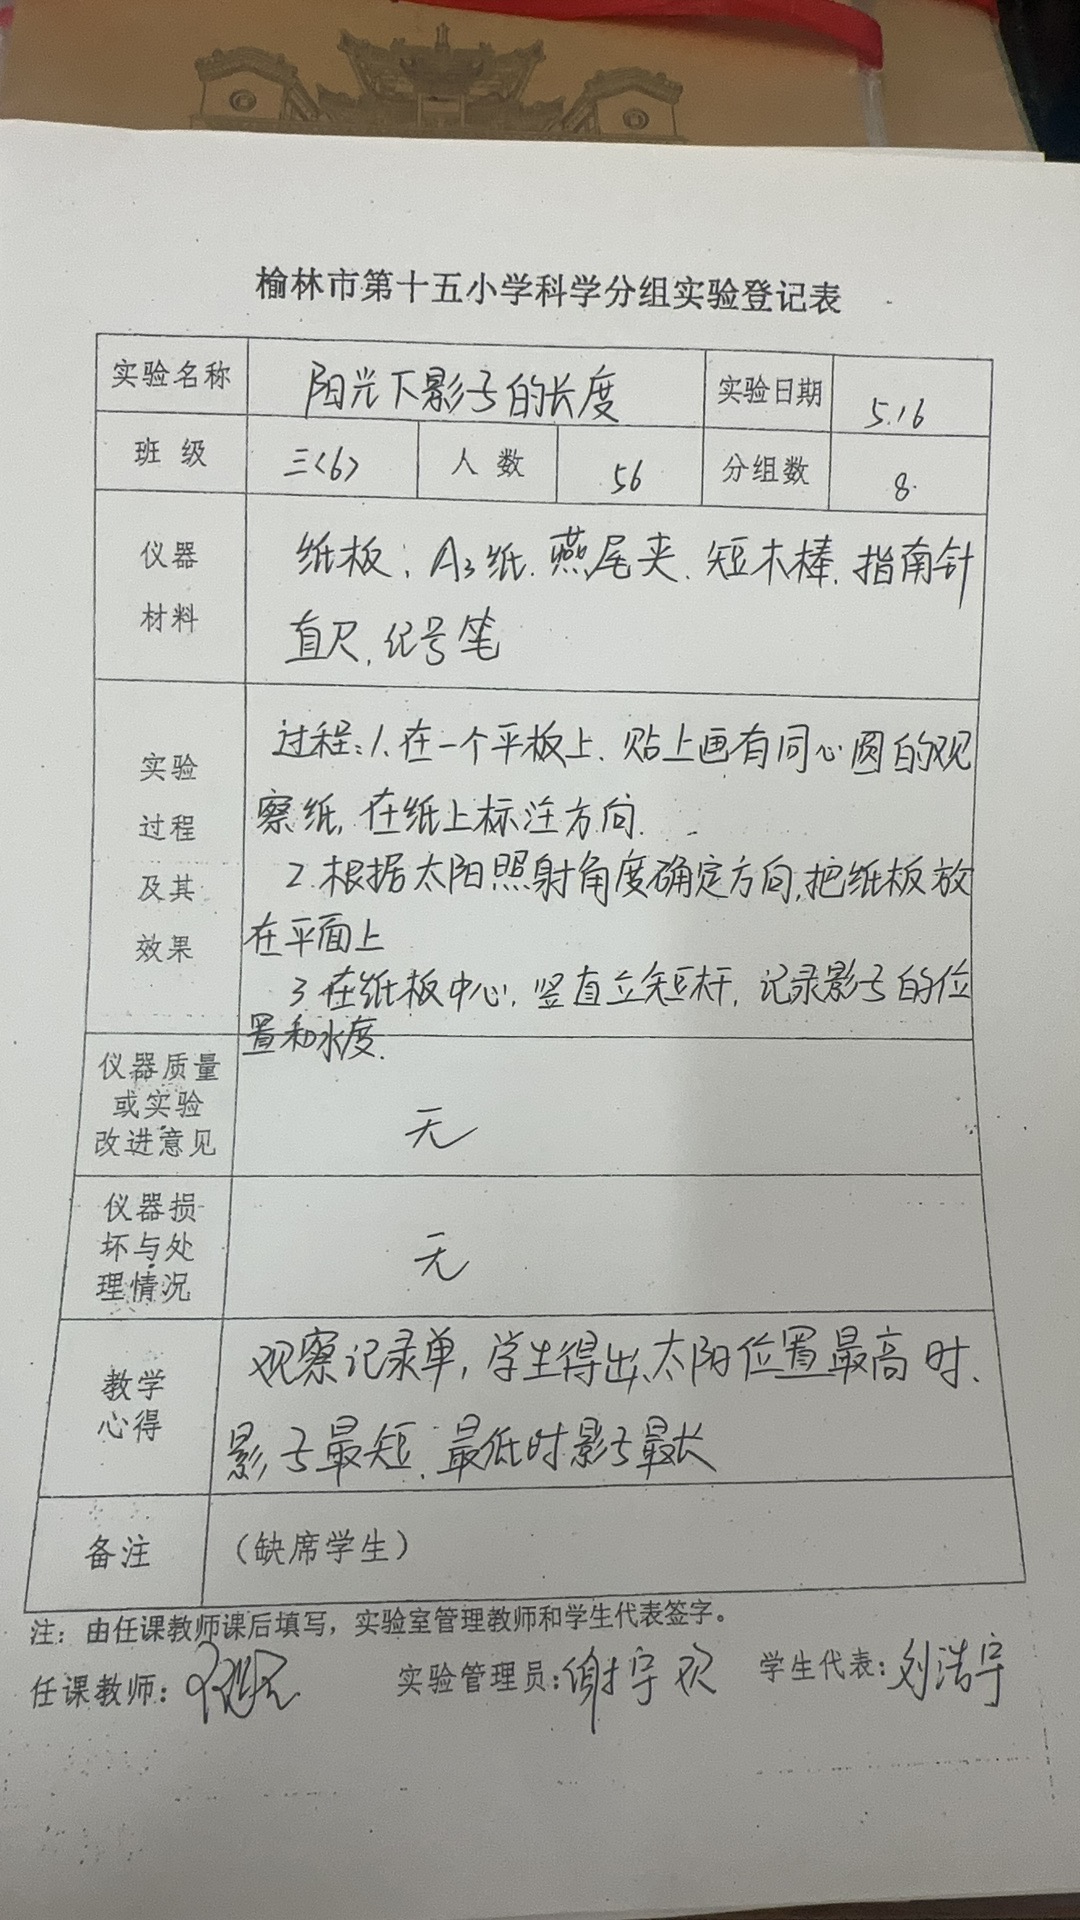 榆林市第十五小学科学分组实验登记表
实验名称 阳光下影子的长度 实验日期 5.16
班级 三<6> 人数 56 分组数 8
仪器
材料
纸板、A3纸、燕尾夹、短木棒、指南针
直尺、记号笔
实验
过程
及其
效果
过程:1.在一个平板上、贴上画有同心圆的观
察纸,在纸上标注方向.
2.根据太阳照射角度确定方向,把纸板放
在平面上
3在纸板中心,竖直立短杆,记录影子的位
置和水度.
仪器质量
或实验
改进意见
无
仪器损
坏与处
理情况
无
教学
心得
观察记录单,学生得出、太阳位置最高时、
影子最短、最低时影子最长
备注 (缺席学生)
注:由任课教师课后填写,实验室管理教师和学生代表签字。
任课教师: 实验管理员: 学生代表:刘浩宇